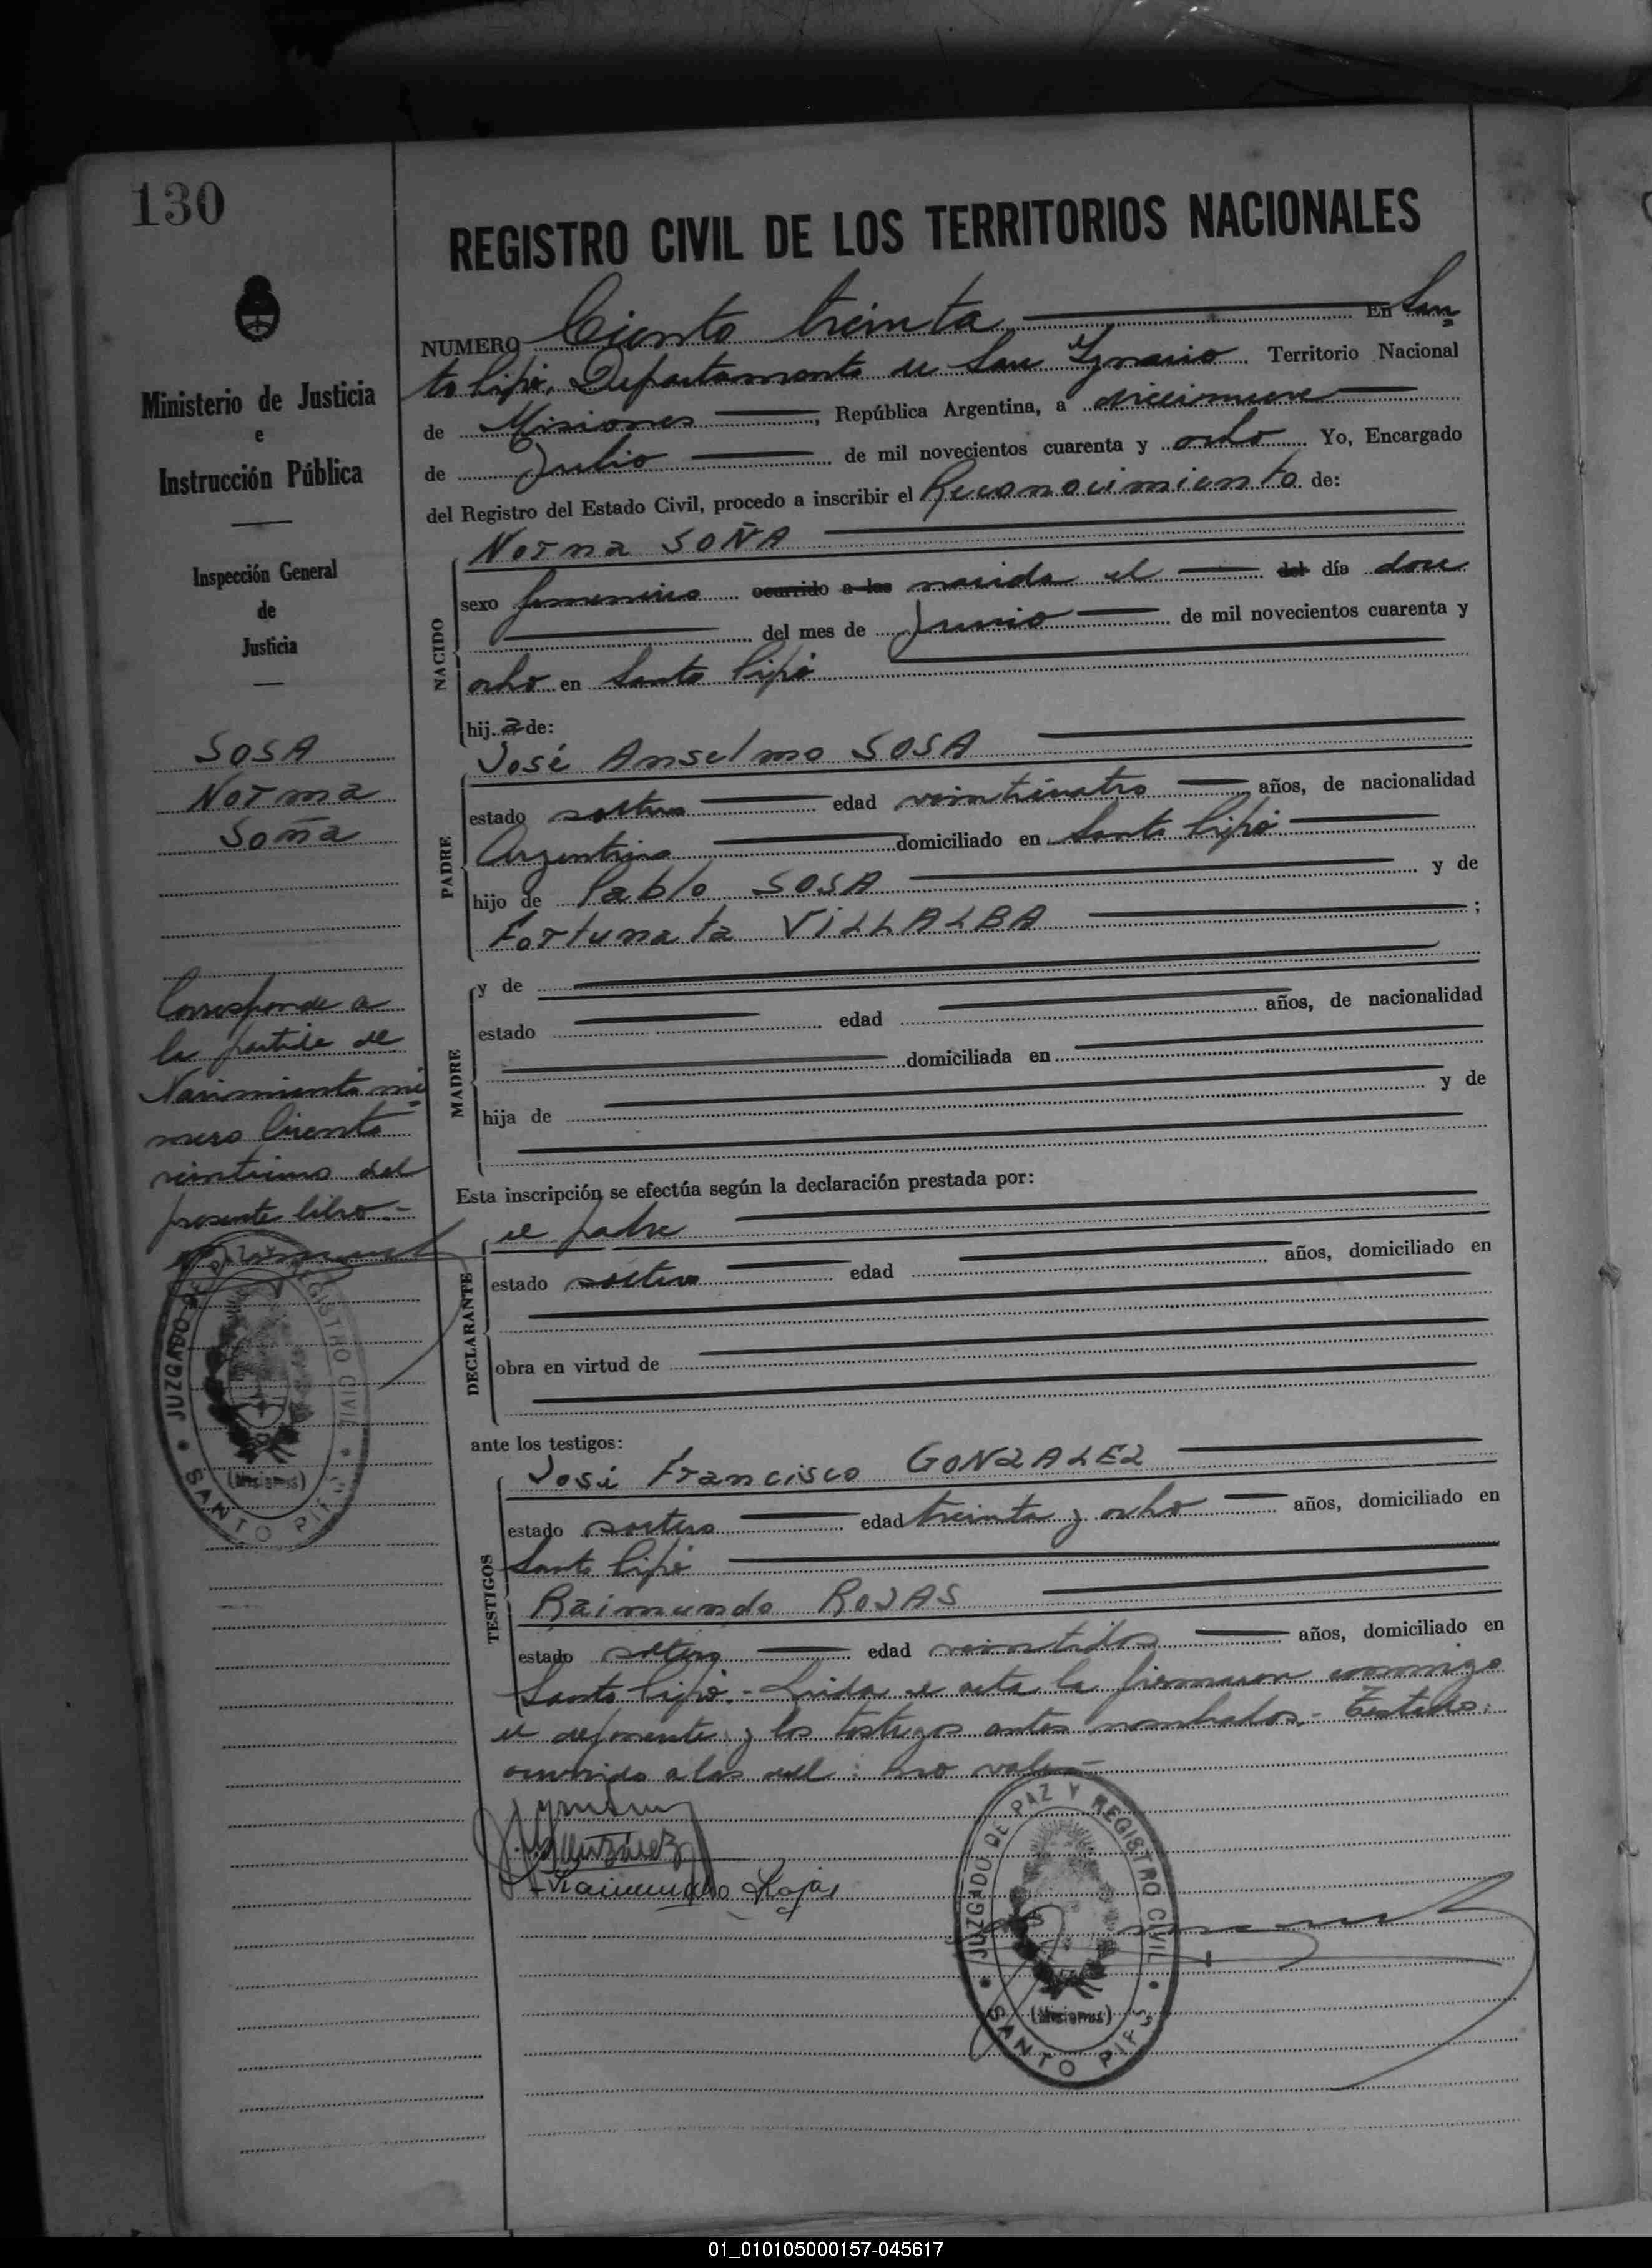 130
REGISTRO CIVIL DE LOS TERRITORIOS NACIONALES
NUMERO Ciento treinta En San=
to Pipó, Departamento de San Ygnacio Territorio Nacional
de Misiones, República Argentina, a diecinueve
de Julio de mil novecientos cuarenta y ocho Yo, Encargado
del Registro del Estado Civil, procedo a inscribir el Reconocimiento de:
NACIDO
Norma SOÑA
sexo femenino ocurrido a las nacida el del día doce
del mes de Junio de mil novecientos cuarenta y
ocho en Santo Pipó
hija de:
PADRE
José Anselmo SOSA
estado soltero edad veinticuatro años, de nacionalidad
Argentina domiciliado en Santo Pipó
hijo de Pablo SOSA y de
Fortunata VILLALBA ;
MADRE
y de
estado edad años, de nacionalidad
domiciliada en
hija de y de
Esta inscripción se efectúa según la declaración prestada por:
DECLARANTE
el padre
estado soltero edad años, domiciliado en
obra en virtud de
ante los testigos:
TESTIGOS
José Francisco GONZALEZ
estado soltero edad treinta y ocho años, domiciliado en
Santo Pipó
Raimundo ROJAS
estado soltero edad veintidos años, domiciliado en
Santo Pipó.- Leida el acta la firmaron conmigo
el deponente y los testigos antes nombrados.- Testado:
ocurrido a las del: no vale-
Raimundo Rojas
JUZGADO DE PAZ Y REGISTRO CIVIL
(Misiones)
SANTO PIPÓ
Ministerio de Justicia
e
Instrucción Pública
Inspección General
de
Justicia
SOSA
Norma
Soña
Corresponde a
la partida de
Nacimiento nú=
mero Ciento
veintiuno del
presente libro.-
JUZGADO DE PAZ Y REGISTRO CIVIL
(Misiones)
SANTO PIPÓ
01_010105000157-045617